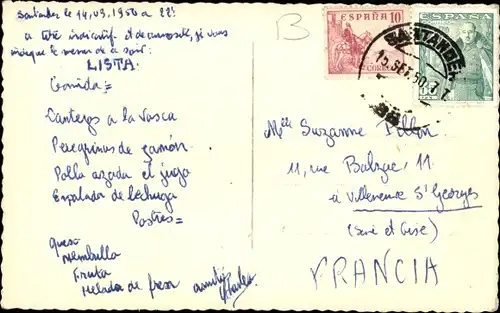 Santander le 14.09.1950 a 22h
a titre indicatif et de curiosité, je vous
indique le menu de ce soir:
LISTA.
Comida =
a la Vasca
Peregrinas de jamón
Polla azada el jugo
Ensalada de lechuga
Postres =
queso
Membrillo
Fruta
Helado de fresa
amitiés
Charles
B
ESPAÑA 10
CORREOS
ESPAÑA
SANTANDER
15 SET. 50. 7. T.
Melle Suzanne
11, rue Balzac, 11
à Villeneuve St Georges
(Seine et Oise)
FRANCIA